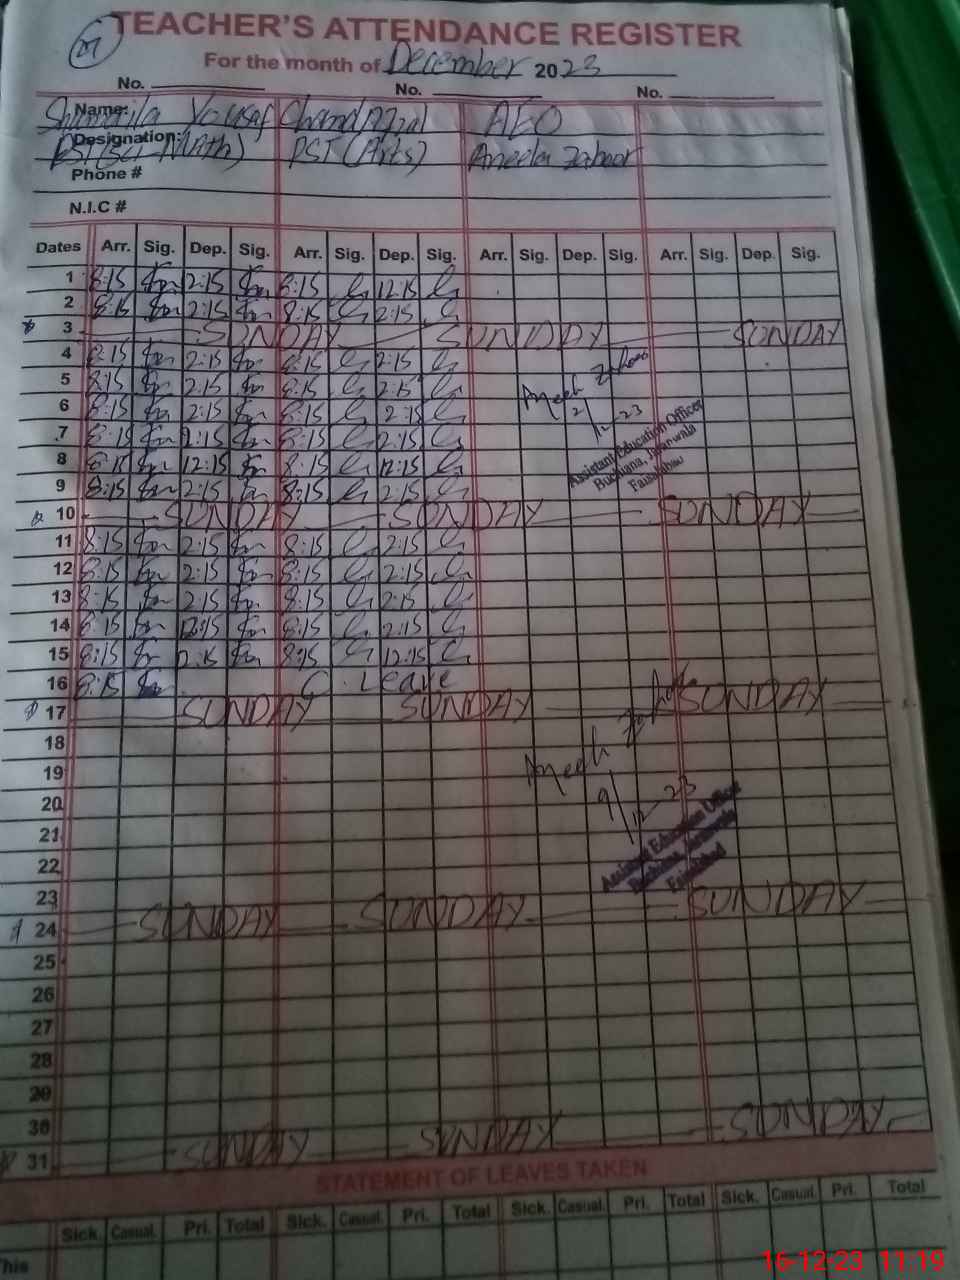 27
TEACHER'S ATTENDANCE REGISTER
For the month of December 2023
No. No. No.
Name: Yousaf Chand Afzal AEO
Designation: PST (Sci-Math) PST (Arts) Aneela Zahoor
Phone #
N.I.C #
Dates Arr. Sig. Dep. Sig. Arr. Sig. Dep. Sig. Arr. Sig. Dep. Sig. Arr. Sig. Dep. Sig.
1 8:15 2:15 8:15 12:15
2 8:15 2:15 8:15 2:15
3 SUNDAY SUNDAY SUNDAY
4 8:15 2:15 8:15 2:15
5 8:15 2:15 8:15 2:15
6 8:15 2:15 8:15 2:15
7 8:15 2:15 8:15 2:15
8 8:15 12:15 8:15 12:15
9 8:15 2:15 8:15 2:15
Aneela Zahoor
2/12-23
Assistant Education Officer
Buchiana, Jaranwala
Faisalabad
10 SUNDAY SUNDAY SUNDAY
11 8:15 2:15 8:15 2:15
12 8:15 2:15 8:15 2:15
13 8:15 2:15 8:15 2:15
14 8:15 8:15 2:15
15 8:15 2:15 8:15 12:15
16 8:15 C. Leave
17 SUNDAY SUNDAY SUNDAY
18
19
20
21
22
Aneela Zahoor
9/12-23
Assistant Education Officer
Buchiana, Jaranwala
Faisalabad
23
24 SUNDAY SUNDAY SUNDAY
25
26
27
28
29
30
31 SUNDAY SUNDAY SUNDAY
STATEMENT OF LEAVES TAKEN
Sick. Casual. Pri. Total Sick. Casual. Pri. Total Sick. Casual. Pri. Total Sick. Casual. Pri. Total
This
16-12-23 11:19